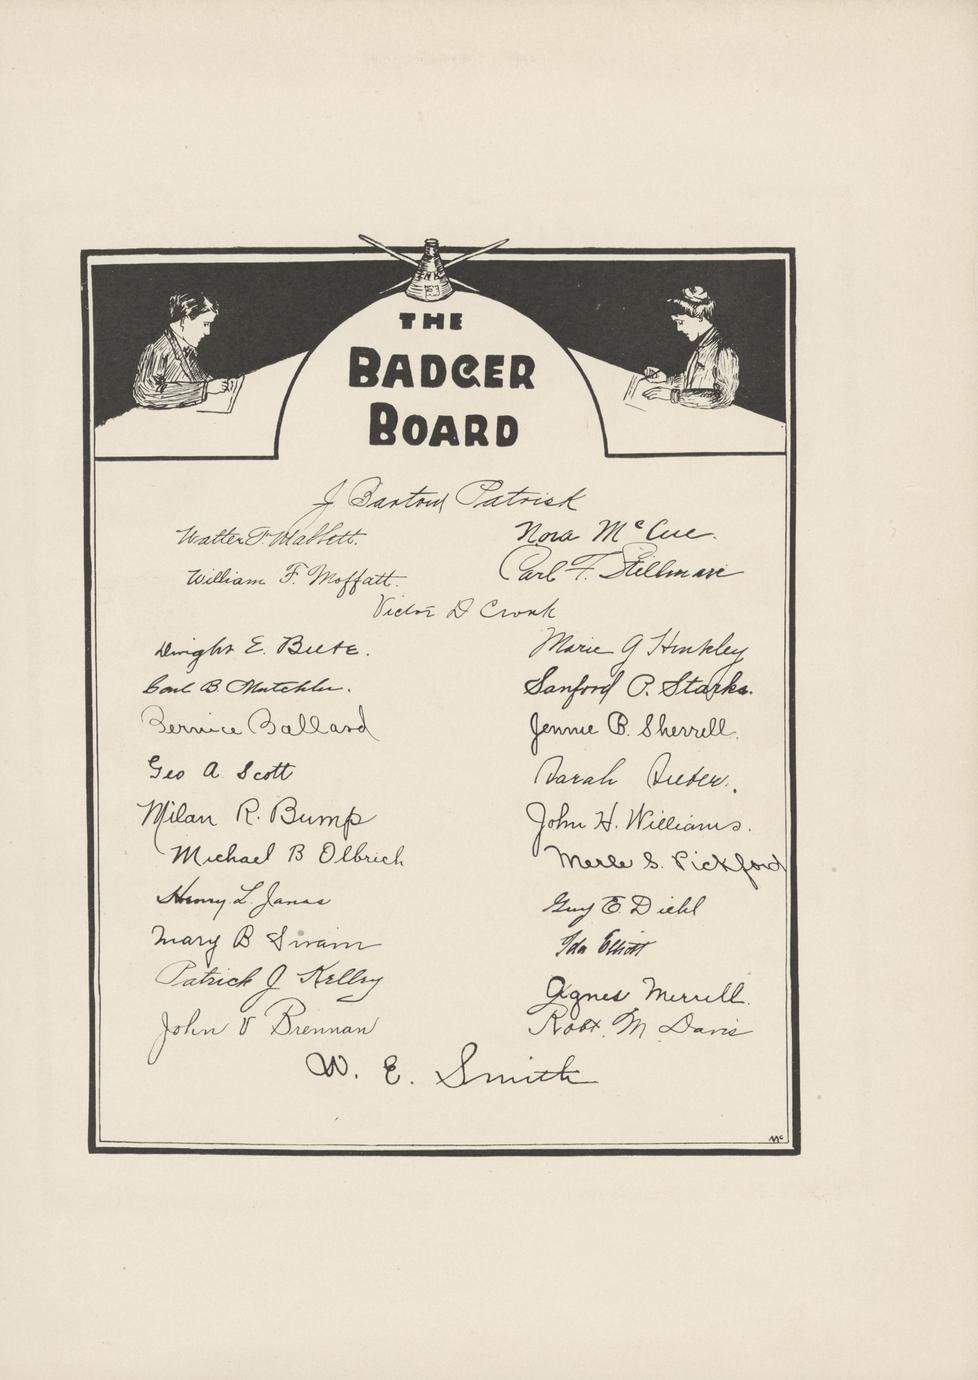 INK
THE
BADGER
BOARD
J Barton Patrick
Walter F. Mabbett.
Nora McCue.
William F. Moffatt.
Carl F. Stillman
Victor D Cronk
Dwight E. Beebe.
Marie G Hinkley
Carl B. Mutchler.
Sanford P. Starks.
Bernice Ballard
Jennie B. Sherrell.
Geo A. Scott
Sarah
Milan R. Bump
John H. Williams.
Michael B Olbrich
Merle S. Pickford
Henry L. Janes
Guy E. Diehl
Mary B Swain
Ida Elliott
Patrick J Kelley
Agnes Merrill.
John V Brennan
Robt. M. Davis
W. E. Smith
Mc